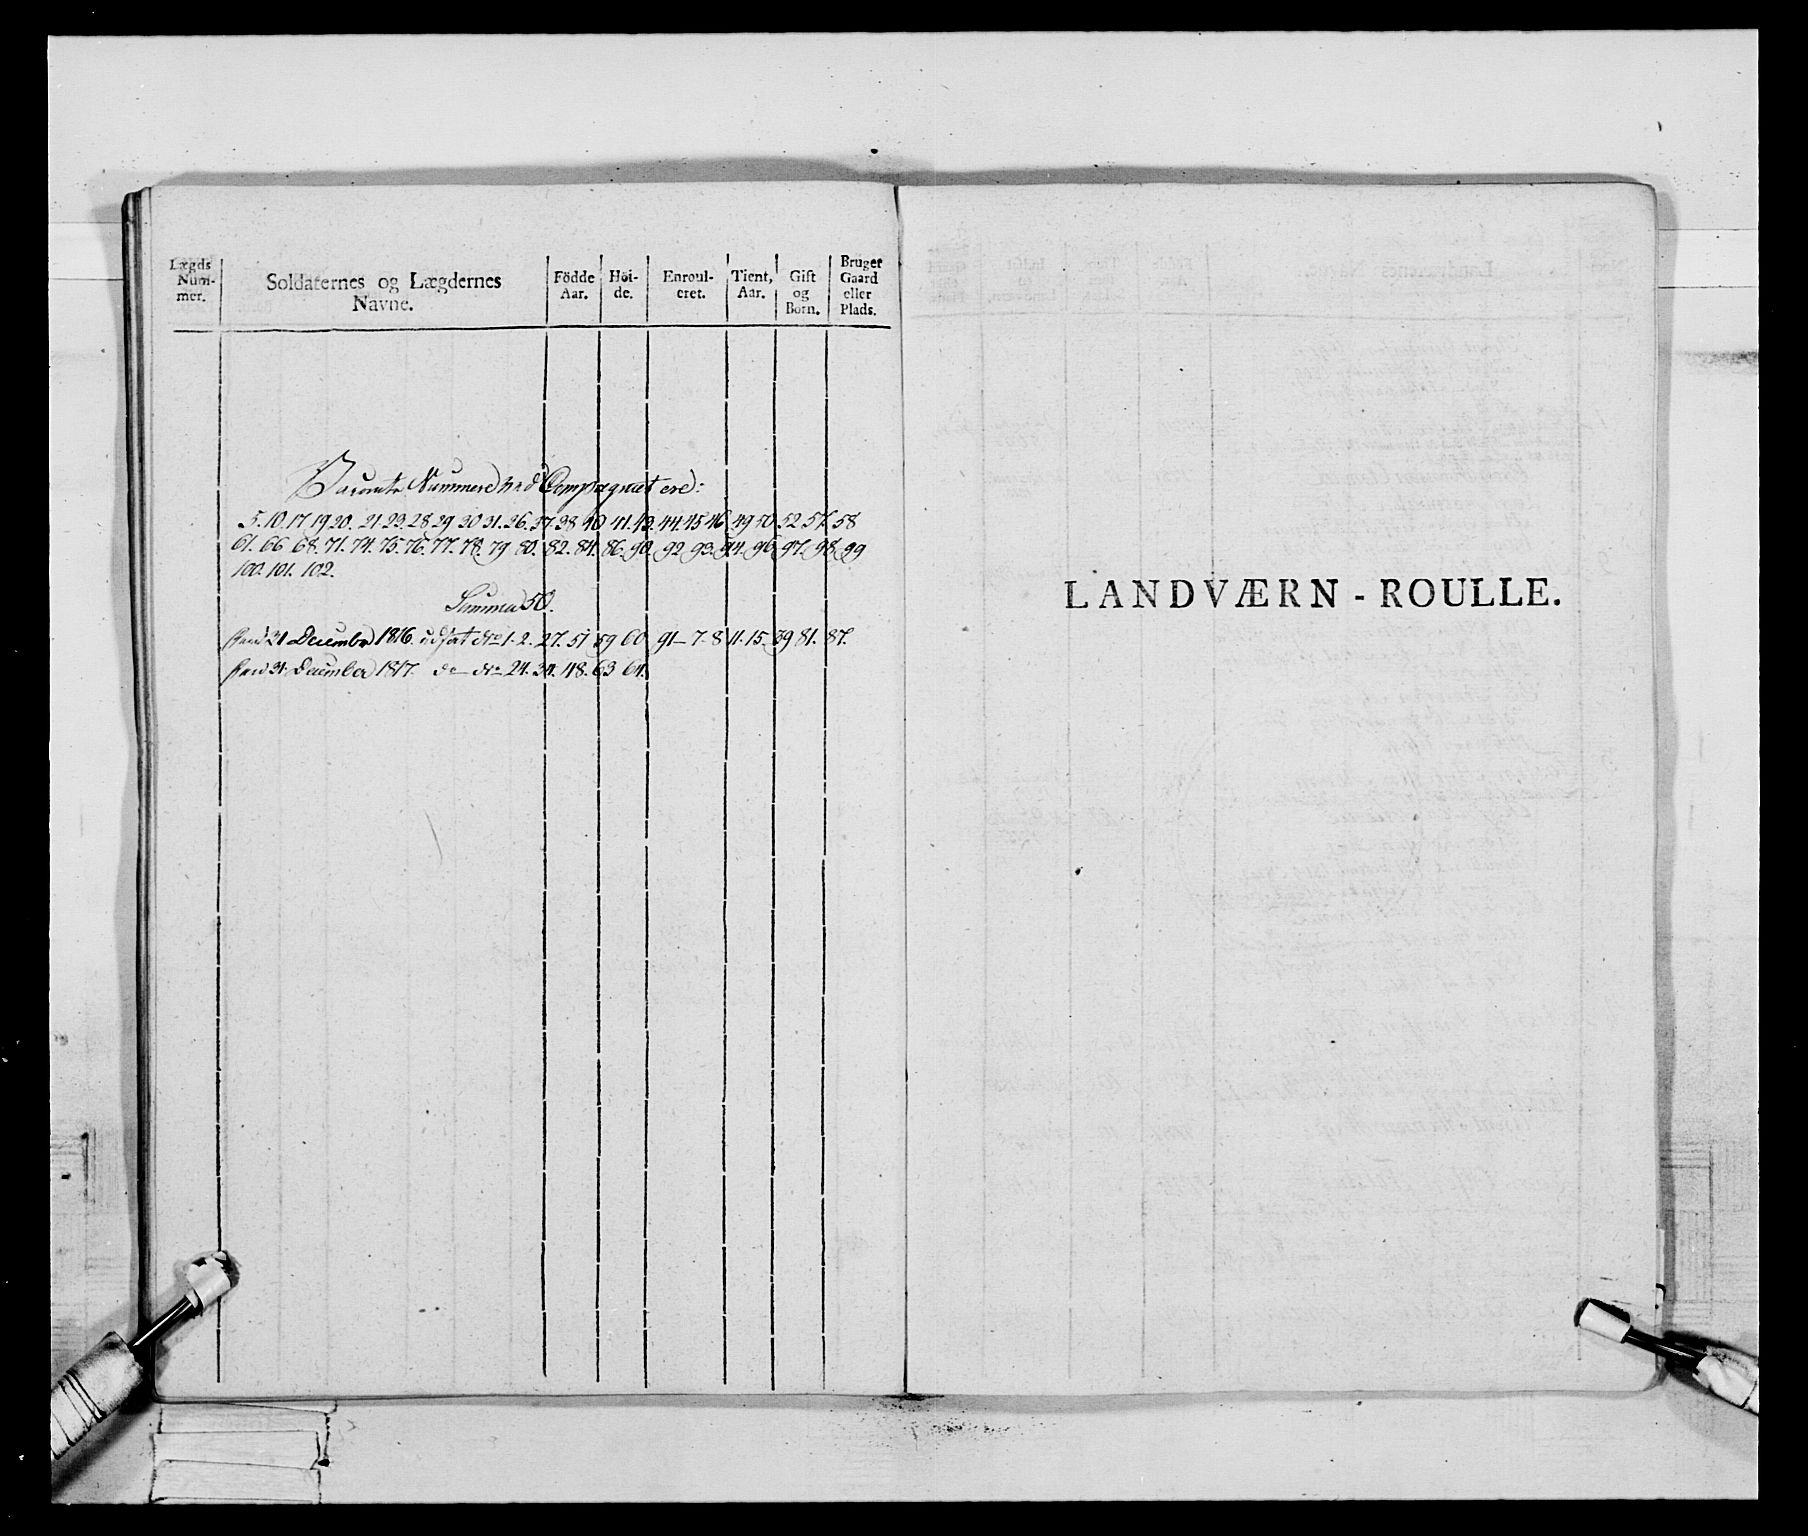 Lægds Num- mer.
Soldaternes og Lægdernes Navne.
Födde Aar.
Höi- de.
Enroul- eret.
Tient, Aar.
Gift og Börn.
Bruger Gaard eller Plads.
Vacante Nummere ved Compagniet ere:
5. 10. 17 19 20. 21. 23. 28. 29 30 31. 26. 37. 38 40 41. 43. 44. 45 46 49 50 52 57. 58
61. 66 68. 71. 74. 75. 76. 77. 78. 79 80. 82. 84. 86. 90. 92 93. 94. 96 97. 98. 99
100. 101. 102.
Summa 50.
31 December 1816. udsat No 1. 2. 27. 51 59 60 91 - 7. 8 11. 15. 39 81. 87.
31 December 1817. do No 24. 34. 48. 63 64.
LANDVÆRN - ROULLE.